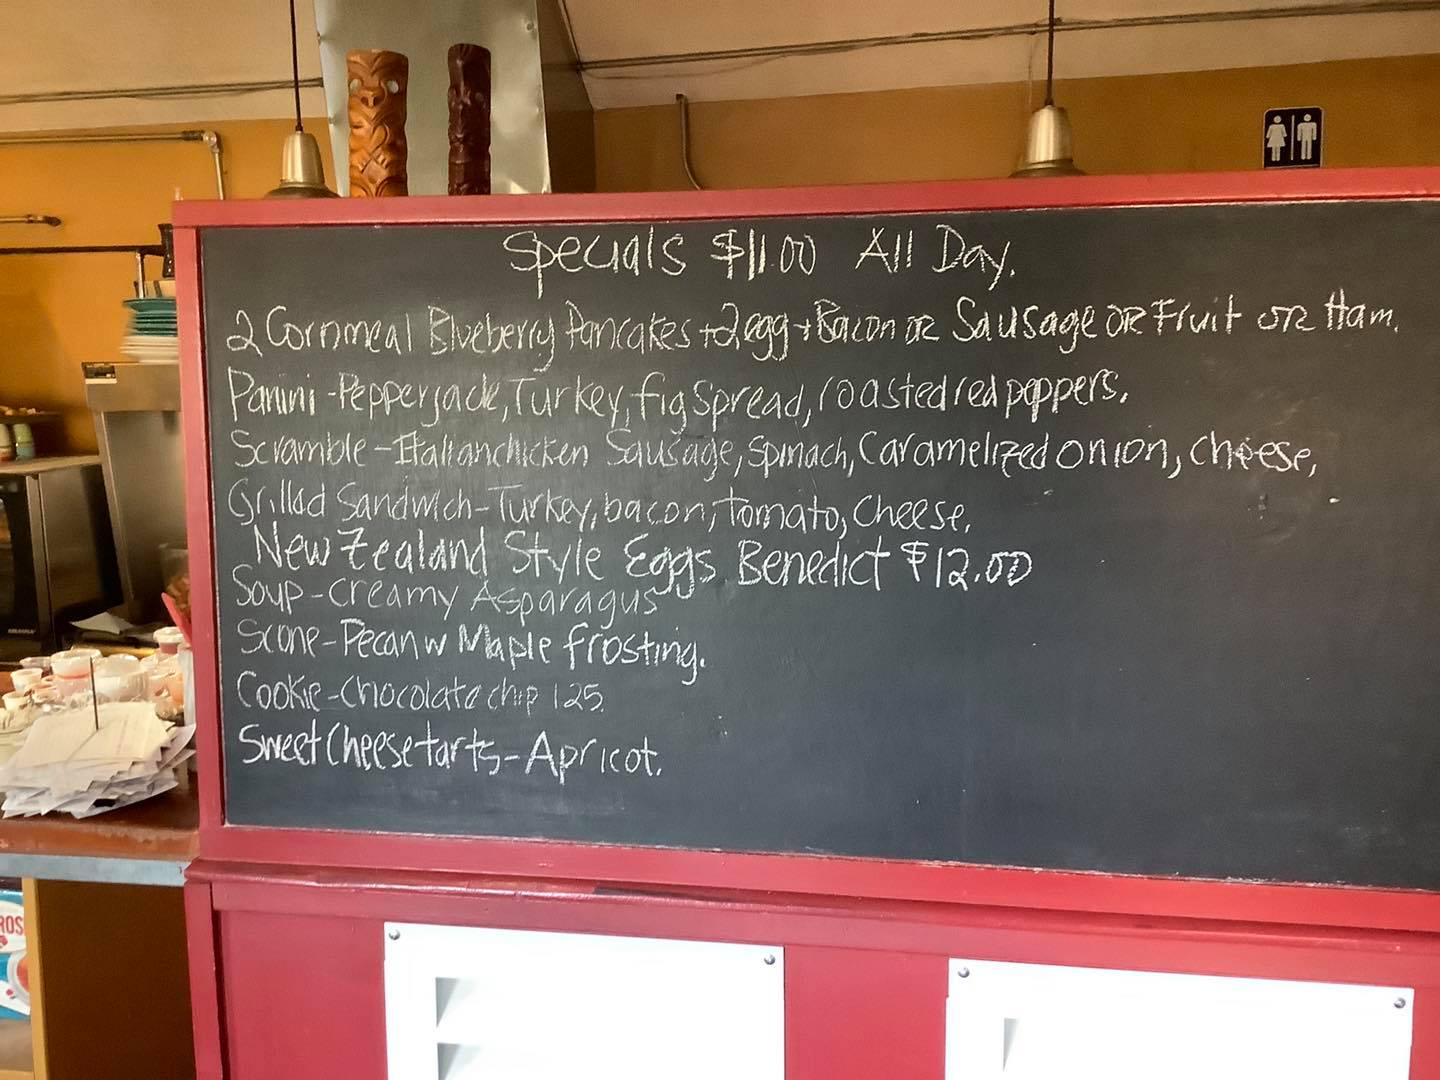 Specials $11.00 All Day.
2 Cornmeal Blueberry Pancakes + 2 egg + Bacon or Sausage OR Fruit or Ham.
Panini - Pepperjack, Turkey, fig Spread, roasted red peppers.
Scramble - Italian chicken Sausage, Spinach, Caramelized onion, cheese,
Grilled Sandwich - Turkey, bacon, tomato, Cheese.
New Zealand Style Eggs Benedict $12.00
Soup - Creamy Asparagus
Scone - Pecan w Maple frosting.
Cookie - Chocolate chip 1.25
Sweet Cheese tarts - Apricot.
ROS